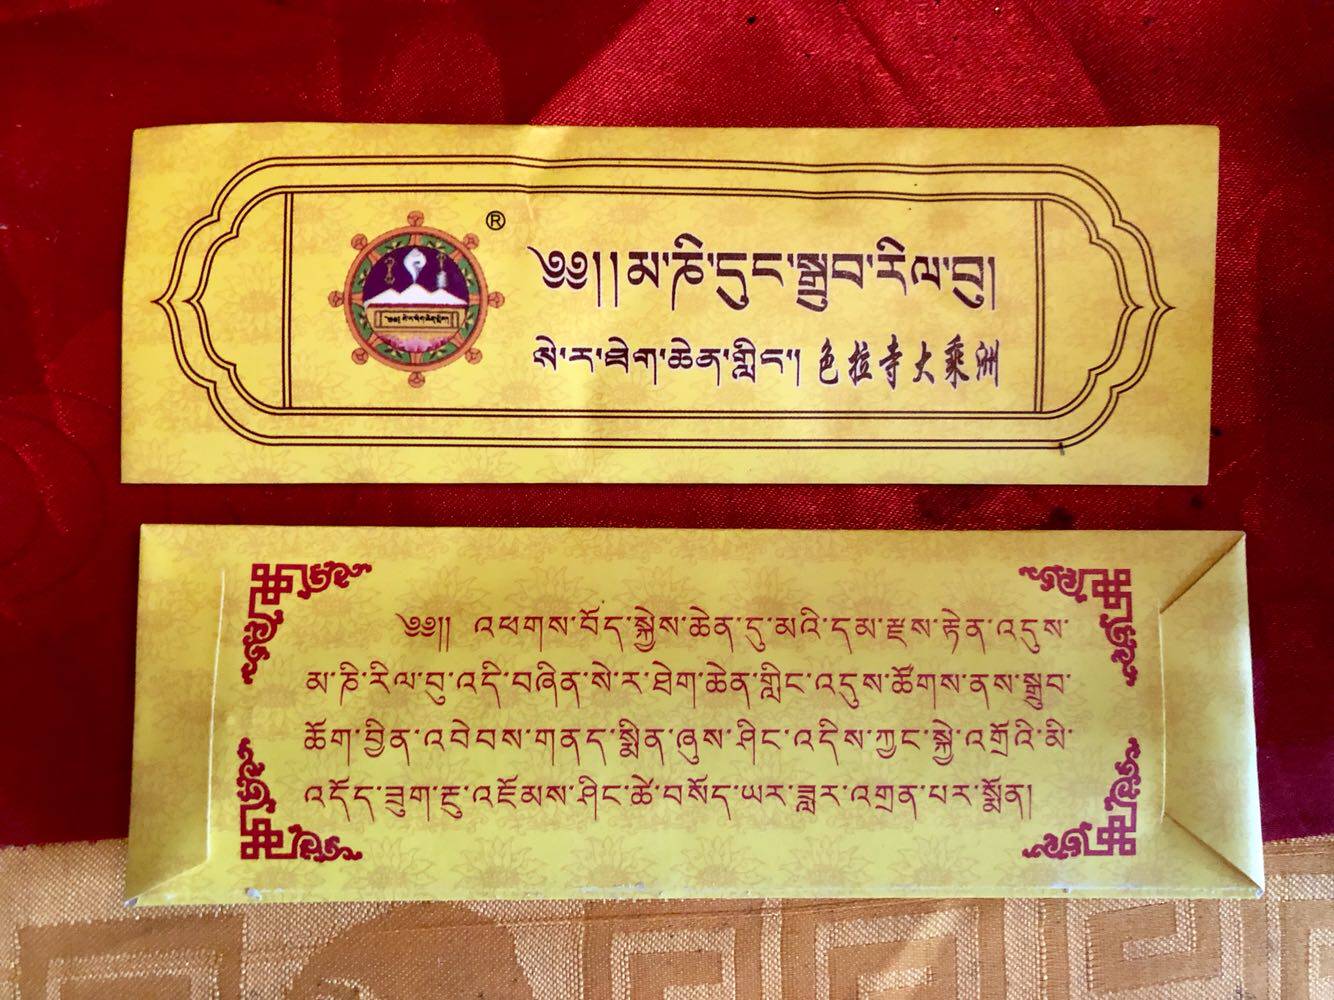 ®
༄༅།།མ་ཎི་དུང་སྒྲུབ་རིལ་བུ།
སེ་ར་ཐེག་ཆེན་གླིང་། 色拉寺大乘洲
༄༅།། འཕགས་བོད་སྐྱེས་ཆེན་དུ་མའི་དམ་རྫས་རྟེན་འདུས་
མ་ཎི་རིལ་བུ་འདི་བཞིན་སེ་ར་ཐེག་ཆེན་གླིང་འདུས་ཚོགས་ནས་སྒྲུབ་
ཆོག་བྱིན་འབེབས་གནད་སྨིན་ཞུས་ཤིང་འདིས་ཀྱང་སྐྱེ་འགྲོའི་མི་
འདོད་ཟུག་རྔུ་འཇོམས་ཤིང་ཚེ་བསོད་ཡར་ཟླར་འགྲན་པར་སྨོན།